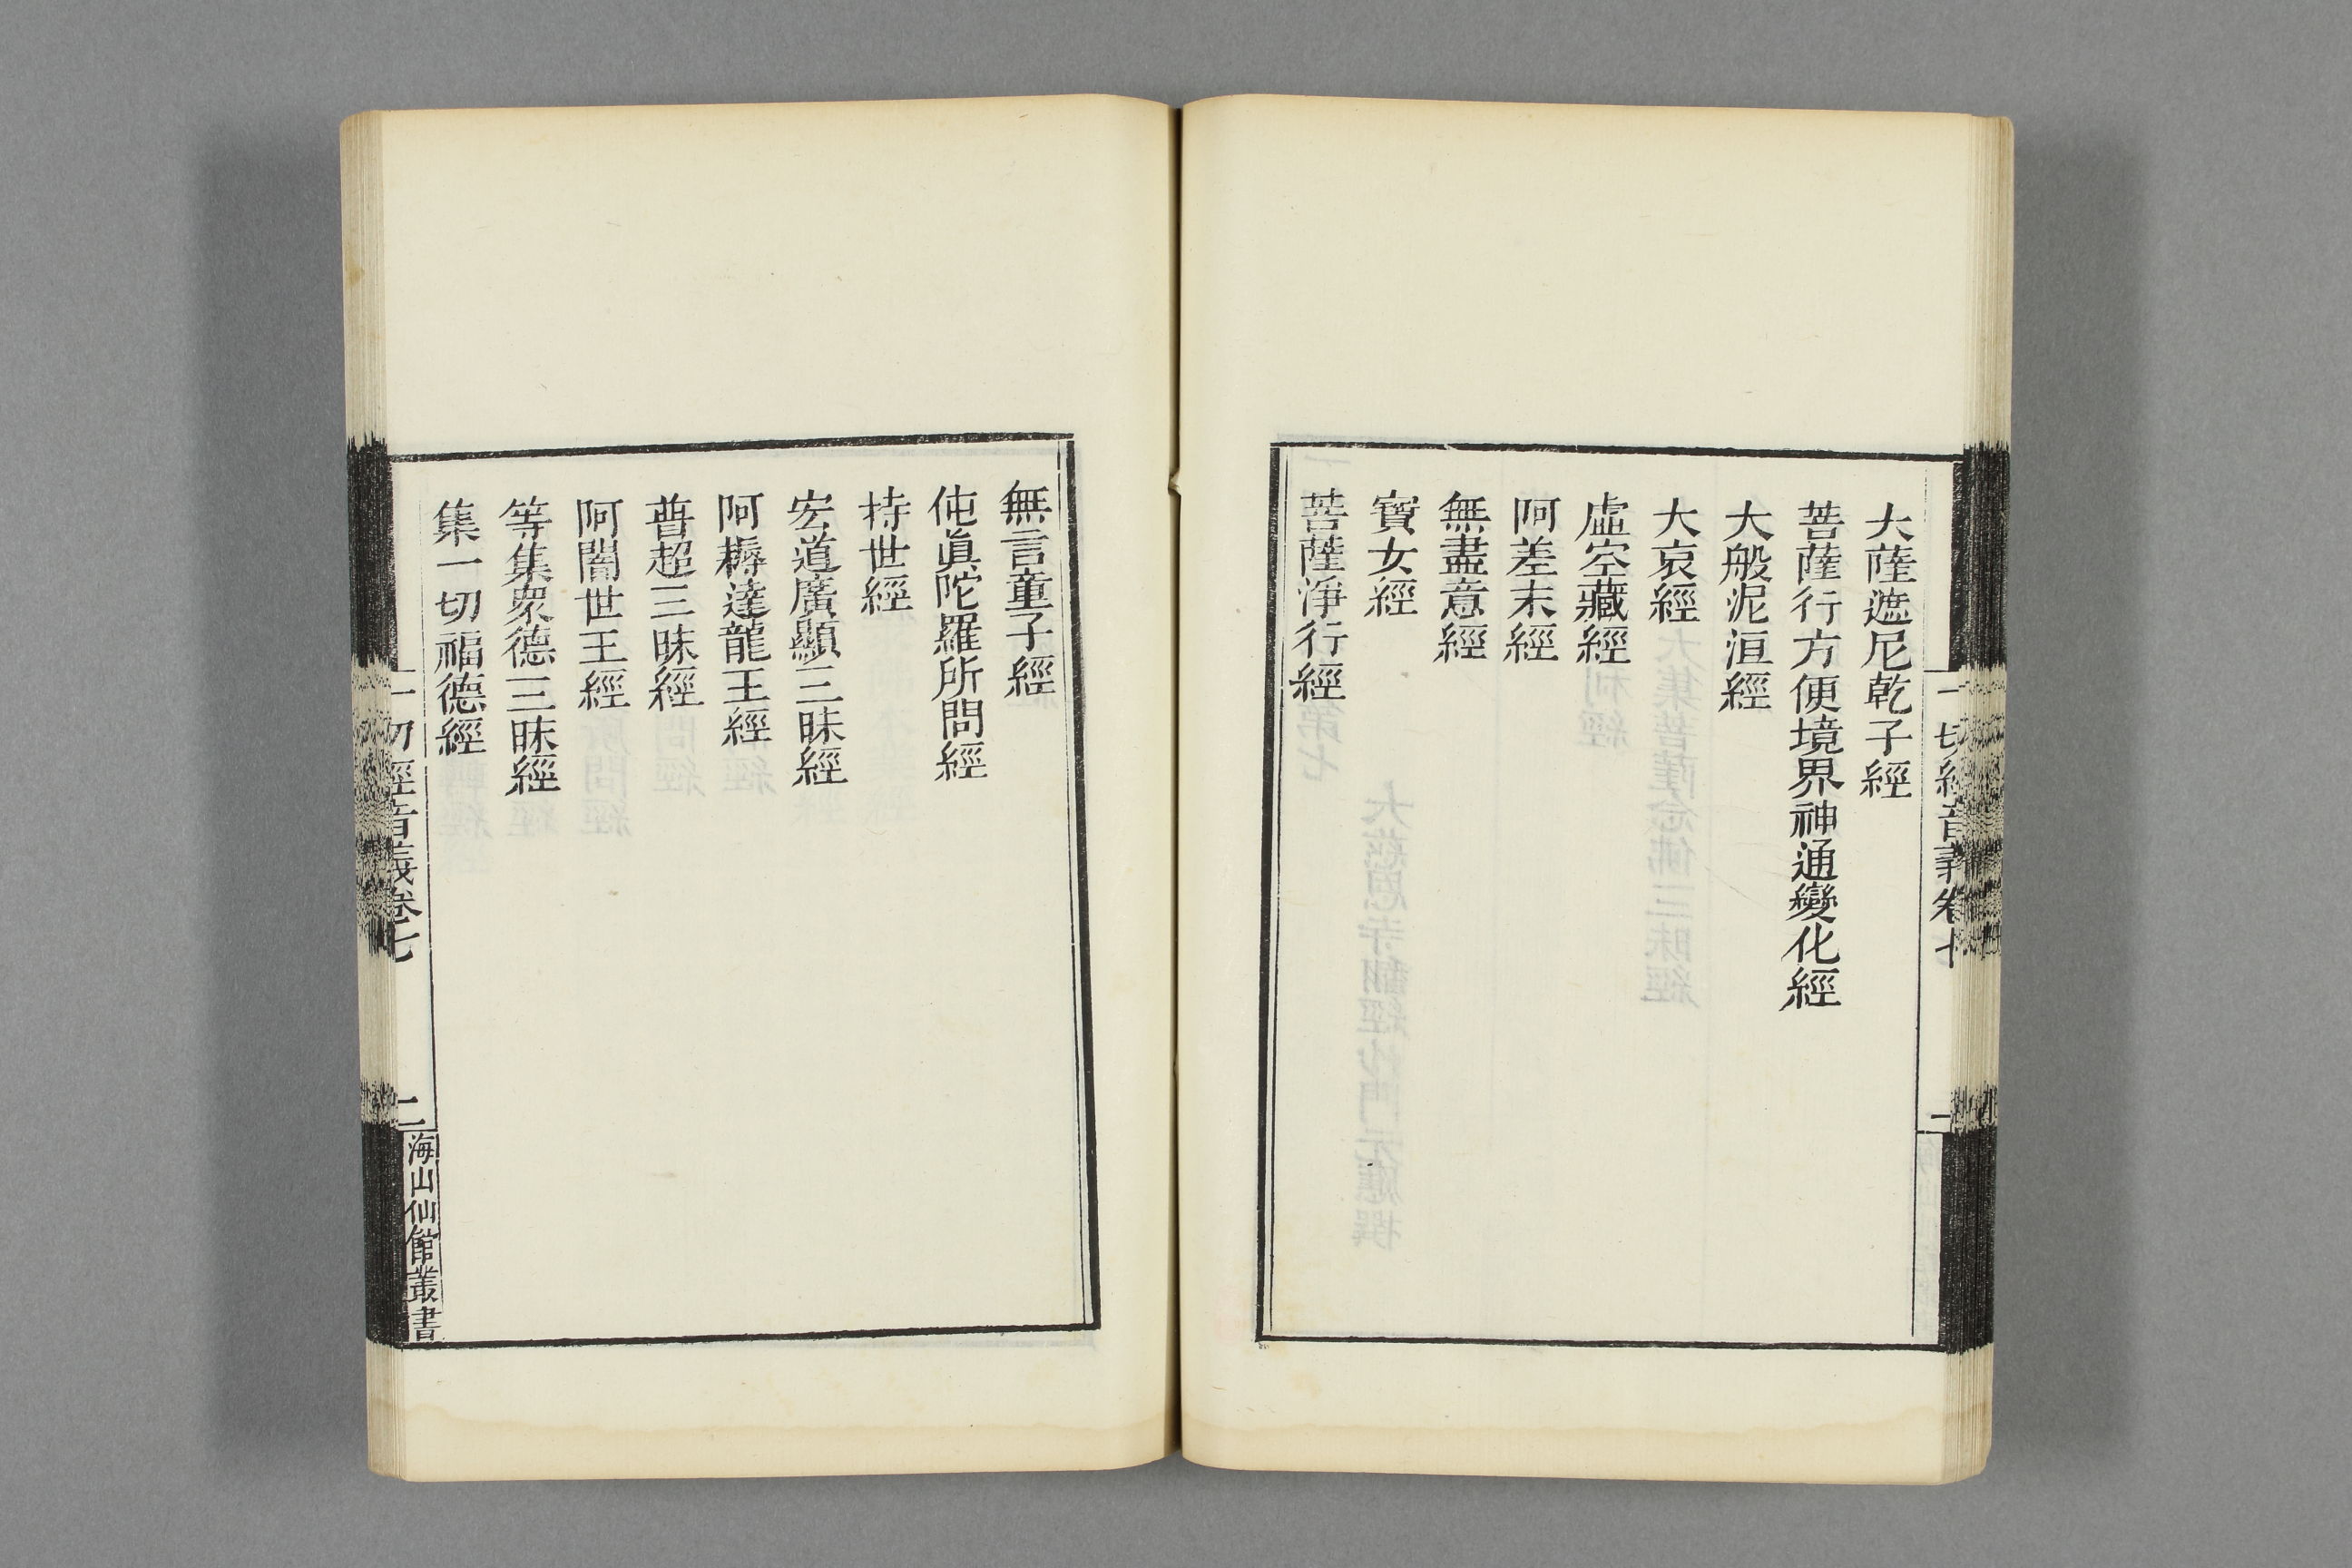 大薩遮尼乾子經
菩薩行方便境界神通變化經
大般泥洹經
大哀經
虛空藏經
阿差末經
無盡意經
寶女經
菩薩淨行經
無言童子經
伅眞陀羅所問經
持世經
宏道廣顯三昧經
阿耨達龍王經
普超三昧經
阿闍世王經
等集衆德三昧經
集一切福德經
一切經音義卷七
二
海山仙館叢書